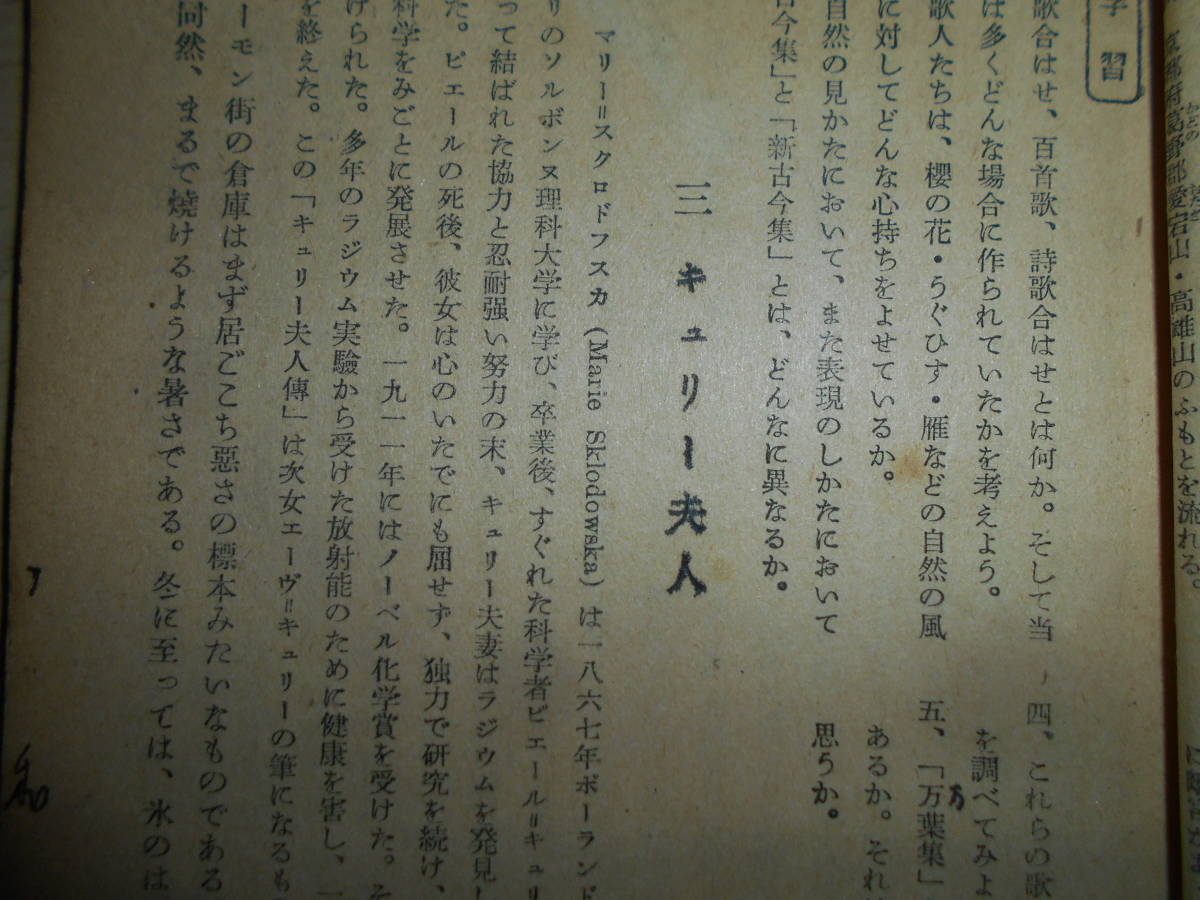 京都府葛野郡愛宕山・高雄山のふもとを流れる。
学習
歌合はせ、百首歌、詩歌合はせとは何か。そして当
は多くどんな場合に作られていたかを考えよう。
歌人たちは、櫻の花・うぐひす・雁などの自然の風
に対してどんな心持ちをよせているか。
自然の見かたにおいて、また表現のしかたにおいて
古今集」と「新古今集」とは、どんなに異なるか。
四、これらの歌
を調べてみよ
五、「万葉集」
あるか。それ
思うか。
三 キュリー夫人
マリー=スクロドフスカ (Marie Sklodowska) は一八六七年ポーランド
リのソルボンヌ理科大学に学び、卒業後、すぐれた科学者ピエール=キュリ
って結ばれた協力と忍耐强い努力の末、キュリー夫妻はラジウムを発見し
た。ピエールの死後、彼女は心のいたでにも屈せず、独力で研究を続け、
科学をみごとに発展させた。一九一一年にはノーベル化学賞を受けた。そ
けられた。多年のラジウム実驗から受けた放射能のために健康を害し、一
を終えた。この「キュリー夫人傳」は次女エーヴ=キュリーの筆になるも
ーモン街の倉庫はまず居ごこち惡さの標本みたいなものである
同然、まるで燒けるような暑さである。冬に至っては、氷のは